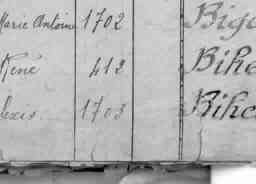 Marie Antoine 1702 Bigo
René 412 Bihe
lexis 1703 Bihe